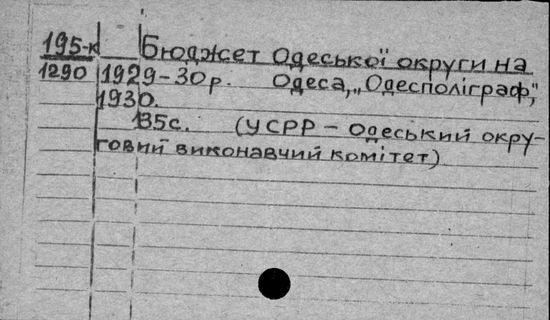 195-к Бюджет Одеської округи на
1290 1929-30р. Одеса, „Одесполіграф",
1930.
135с. (УСРР – Одеський окру-
говий виконавчий комітет)